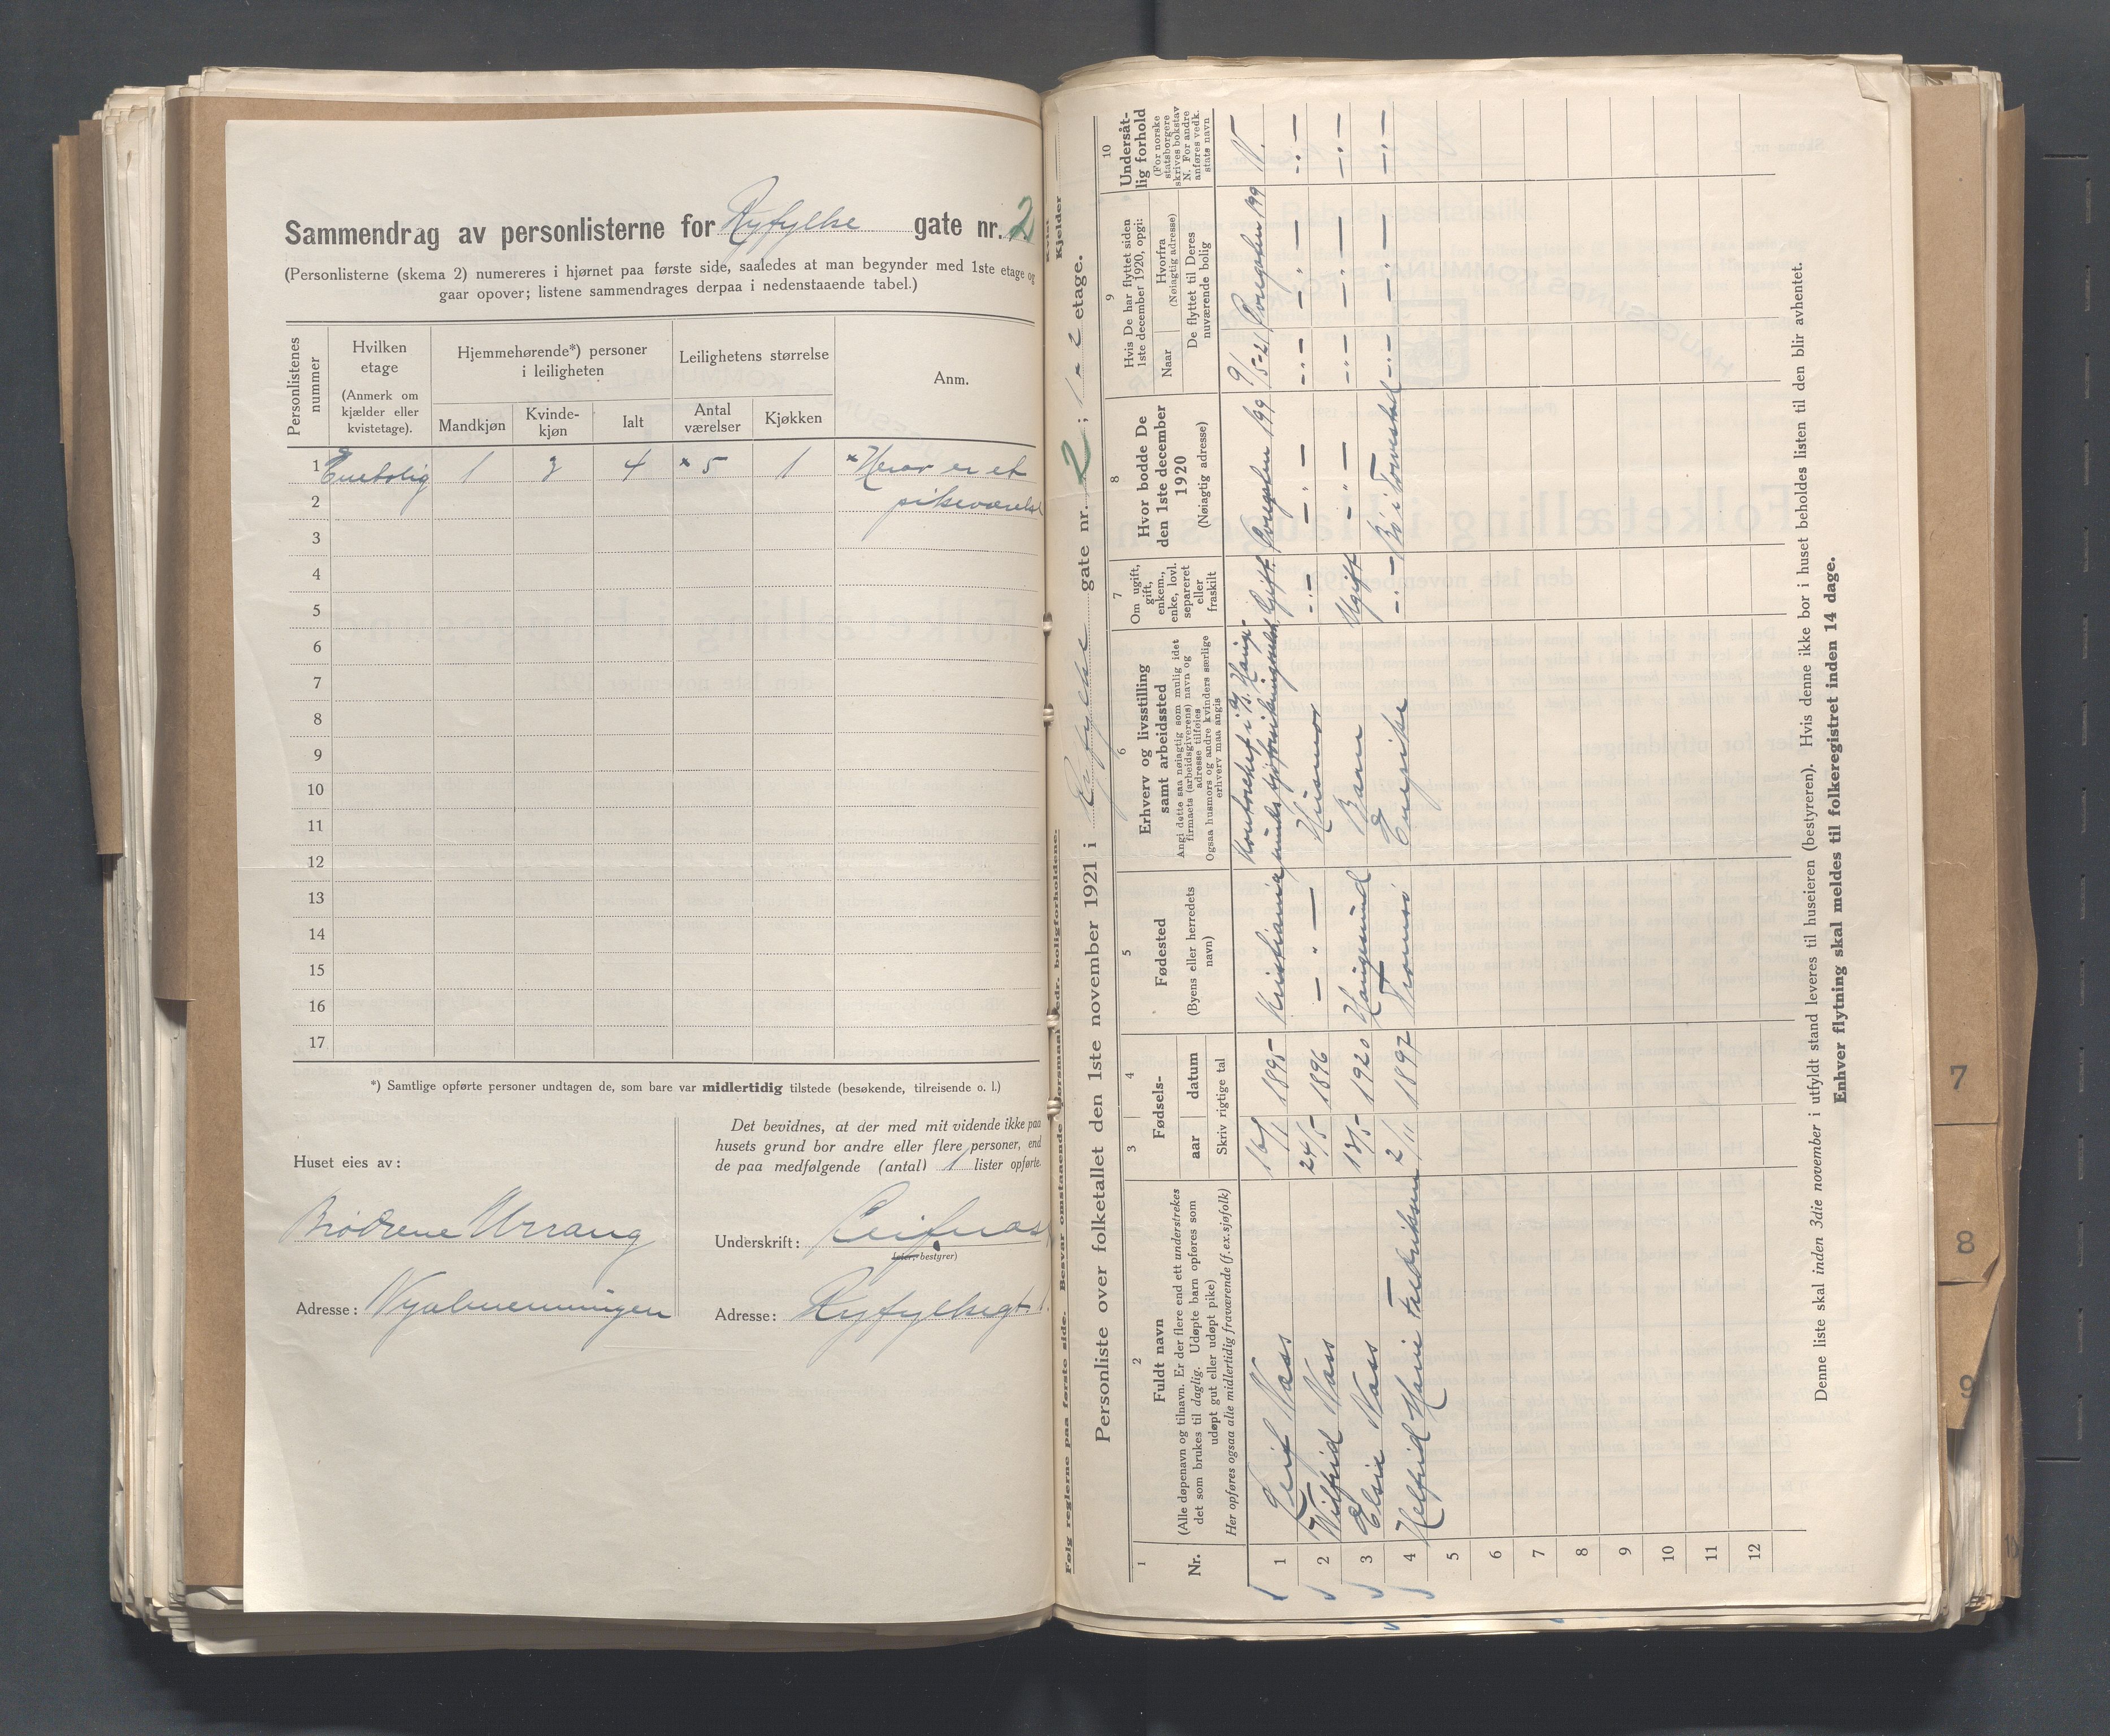 Sammendrag av personlisterne for Ryfylke gate nr. 2
(Personlisterne (skema 2) numereres i hjørnet paa første side, saaledes at man begynder med 1ste etage og
gaar opover; listene sammendrages derpaa i nedenstaaende tabel.)
Personlistenes nummer
Hvilken etage
(Anmerk om kjælder eller kvistetage).
Hjemmehørende*) personer i leiligheten
Mandkjøn
Kvindekjøn
Ialt
Leilighetens størrelse
Antal værelser
Kjøkken
Anm.
1 Enebolig 1 3 4 × 5 1 × Herav er et
2 pikeværelse
3
4
5
6
7
8
9
10
11
12
13
14
15
16
17
*) Samtlige opførte personer undtagen de, som bare var midlertidig tilstede (besøkende, tilreisende o. l.)
Huset eies av:
Brødrene Urrang
Adresse: Nyalmenningen
Det bevidnes, at der med mit vidende ikke paa
husets grund bor andre eller flere personer, end
de paa medfølgende (antal) 1 lister opførte.
Underskrift: Leif Næss
(eier, bestyrer)
Adresse: Ryfylkegt.
Følg reglerne paa første side. Besvar omstaaende spørsmaal vedr. boligforholdene.
Kvist
Kjelder
Personliste over folketallet den 1ste november 1921 i Ryfylke gate nr. 2; 1 - 2 etage.
1
Nr.
2
Fuldt navn
(Alle døpenavn og tilnavn. Er der flere end ett understrekes
det som brukes til daglig. Udøpte barn opføres som
udøpt gut eller udøpt pike)
Her opføres ogsaa alle midlertidig fraværende (f.ex.sjøfolk)
3 4
Fødsels-
aar datum
Skriv rigtige tal
5
Fødested
(Byens eller herredets navn)
6
Erhverv og livsstilling
samt arbeidssted
Angi dette saa nøiagtig som mulig idet
firmaets (arbeidsgiverens) navn og
adresse tilføies
Ogsaa husmors og andre kvinders særlige
erhverv maa angis
7
Om ugift,
gift,
enkem.,
enke, lovl.
separeret
eller
fraskilt
8
Hvor bodde De
den 1ste december
1920
(Nøiagtig adresse)
9
Hvis De har flyttet siden
1ste december 1920, opgi:
Naar
Hvorfra
(Nøiagtig adresse)
De flyttet til Deres
nuværende bolig
10
Undersåtlig forhold
(For norske
statsborgere
skrives bokstav
N. For andre
anføres vedk.
stats navn
1 Leif Næss 16/1 1895 Kristiania Kontorchef i A/S Haugesunds Gift Sørgaten 199 9/5-21 Sørgaten 199 N.
2 Wilfrid Næss 24/5- 1896 — " — Husmor -"- — " — -"- — " — -"-
3 Elsie Næss 1920 Haugesund Barn Ugift — " — -"- — " — -"-
4 Helfrid Marie Fredriksen 2/11 1897 Tromsø Enepike -"- -"- — " — -"-
5
6
7
8
9
10
11
12
Denne liste skal inden 3die november i utfyldt stand leveres til huseieren (bestyreren). Hvis denne ikke bor i huset beholdes listen til den blir avhentet.
Enhver flytning skal meldes til folkeregistret inden 14 dage.
7
8
9